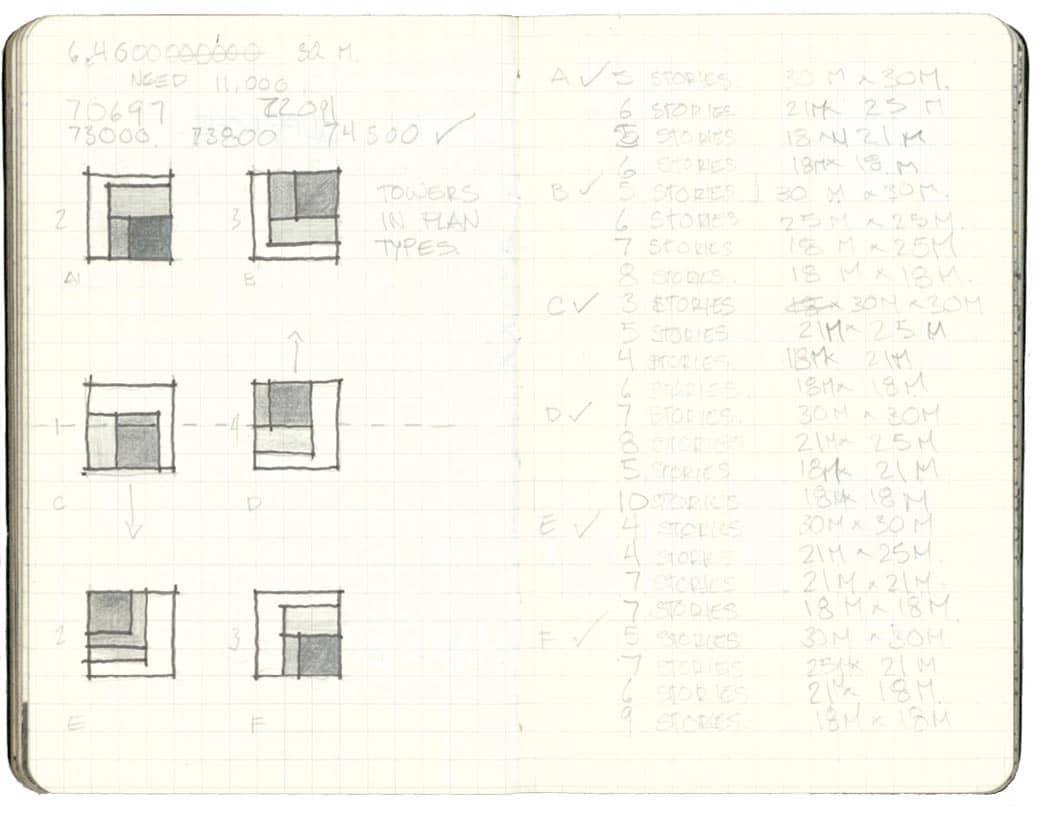 SQ M.
NEED 11,000
70697 72091
73000. 73800 74500 ✓
2
3
TOWERS
IN PLAN
TYPES.
A
B
1
4
C
D
2
3
E
F
A ✓ 5 STORIES 30 M x 30M.
6 STORIES 21M x 25 M
5 STORIES 18 M 21 M
6 STORIES 18M x 18 M
B ✓ 5 STORIES 30 M x 30M.
6 STORIES 25M x 25M.
7 STORIES 18 M x 25M
8 STORIES 18 M x 18M.
C ✓ 3 STORIES 30M x 30M
5 STORIES 21M x 25 M
4 STORIES 18M x 21M
6 STORIES 18M x 18M
D ✓ 7 STORIES 30M x 30M
8 STORIES 21M x 25M
5 STORIES 18M x 21M
10 STORIES 18M x 18M
E ✓ 4 STORIES 30M x 30M
4 STORIES 21M x 25M.
7 STORIES 21M x 21M
7 STORIES 18M x 18M
F ✓ 5 STORIES 30M x 30M
7 STORIES 25M x 21M
6 STORIES 21M x 18M.
9 STORIES 18M x 18M